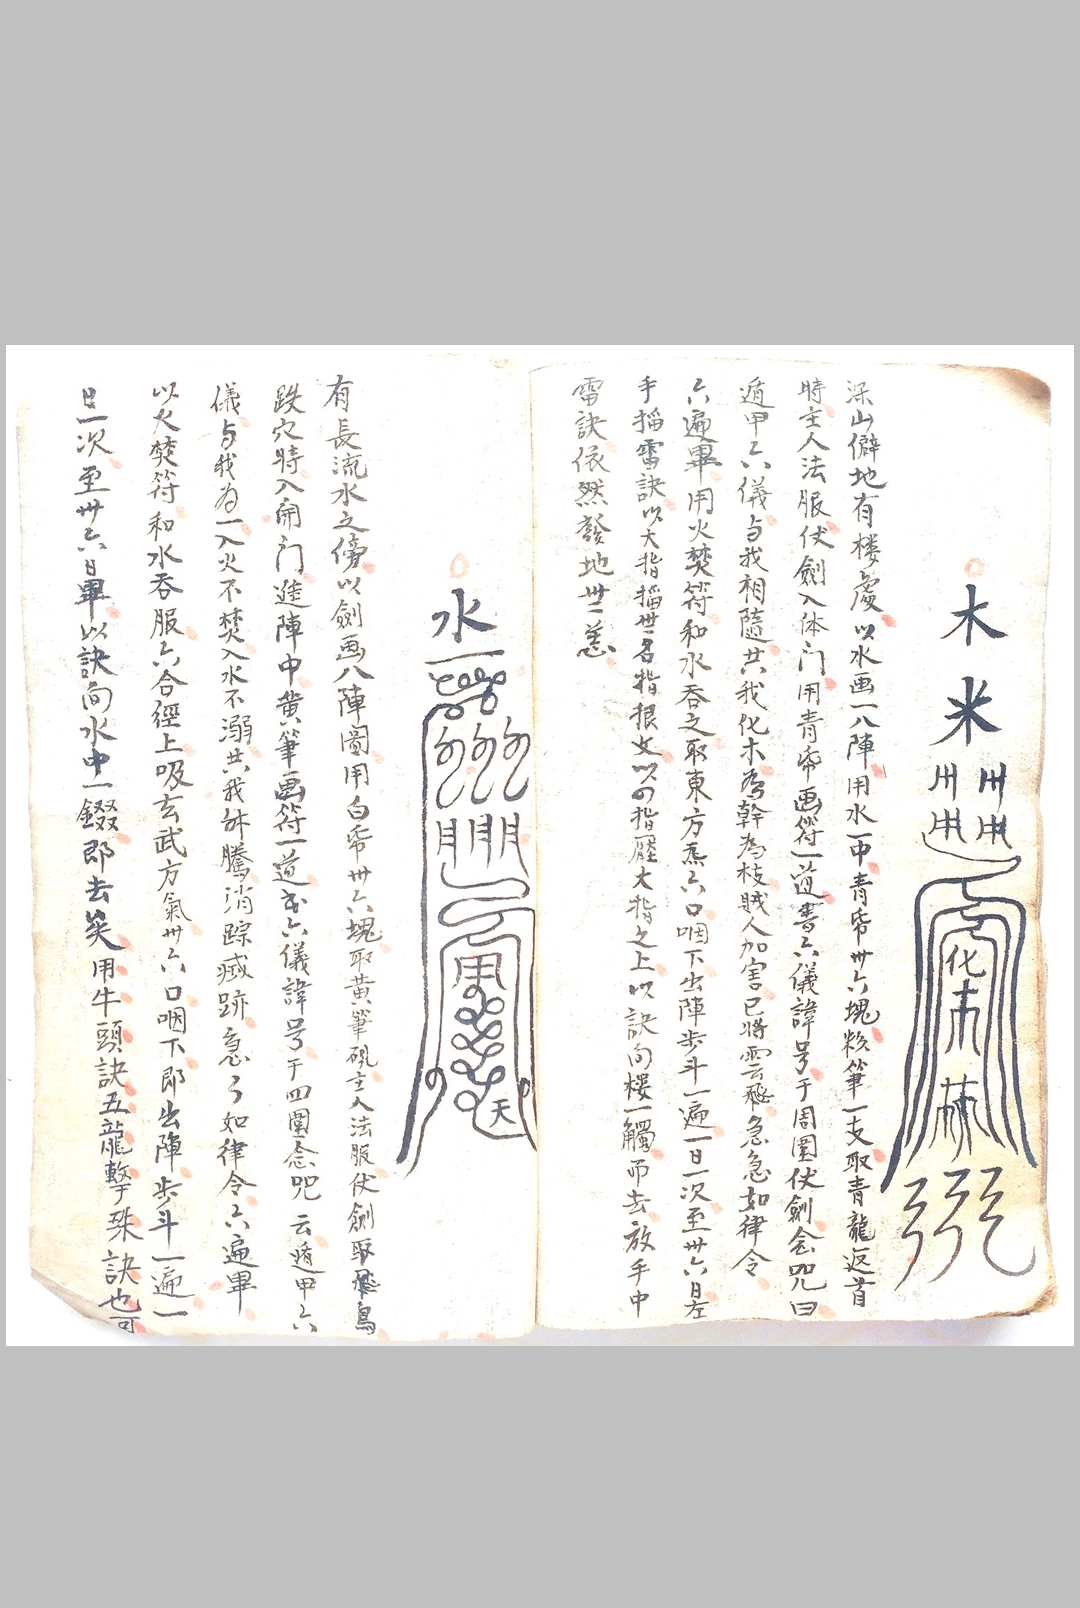 木
米
化木
深山僻地有楼處以水画一八陣用水一中青帋卅六塊粆筆一支取青龍返首
時主人法服仗劍入休门用青帋画符一道書六儀諱号于周圍仗劍念咒曰
遁甲六儀与我相隨共我化木為幹為枝賊人加害已將雲飛急急如律令
六遍畢用火焚符和水吞之取東方炁六口咽下出陣步斗一遍一日一次至卅六日左
手掐雷訣以大指掐卅一名指根文以の指壓大指之上以訣向楼一觸而去放手中
雷訣依然發地卅二
水
天
有長流水之傍以劍画八陣圖用白帋卅六塊取黄筆硯主人法服仗劍取飛鳥
跌穴時入開门進陣中黄筆画符一道書六儀諱号于四圍念咒云遁甲六
儀与我为一入火不焚入水不溺共我昇騰消踪藏跡急々如律令六遍畢
以火焚符和水吞服六合徑上吸玄武方氣卅六口咽下即出陣步斗一遍一
日一次至卅六日畢以訣向水中一錣即去矣用牛頭訣五龍擊珠訣也可